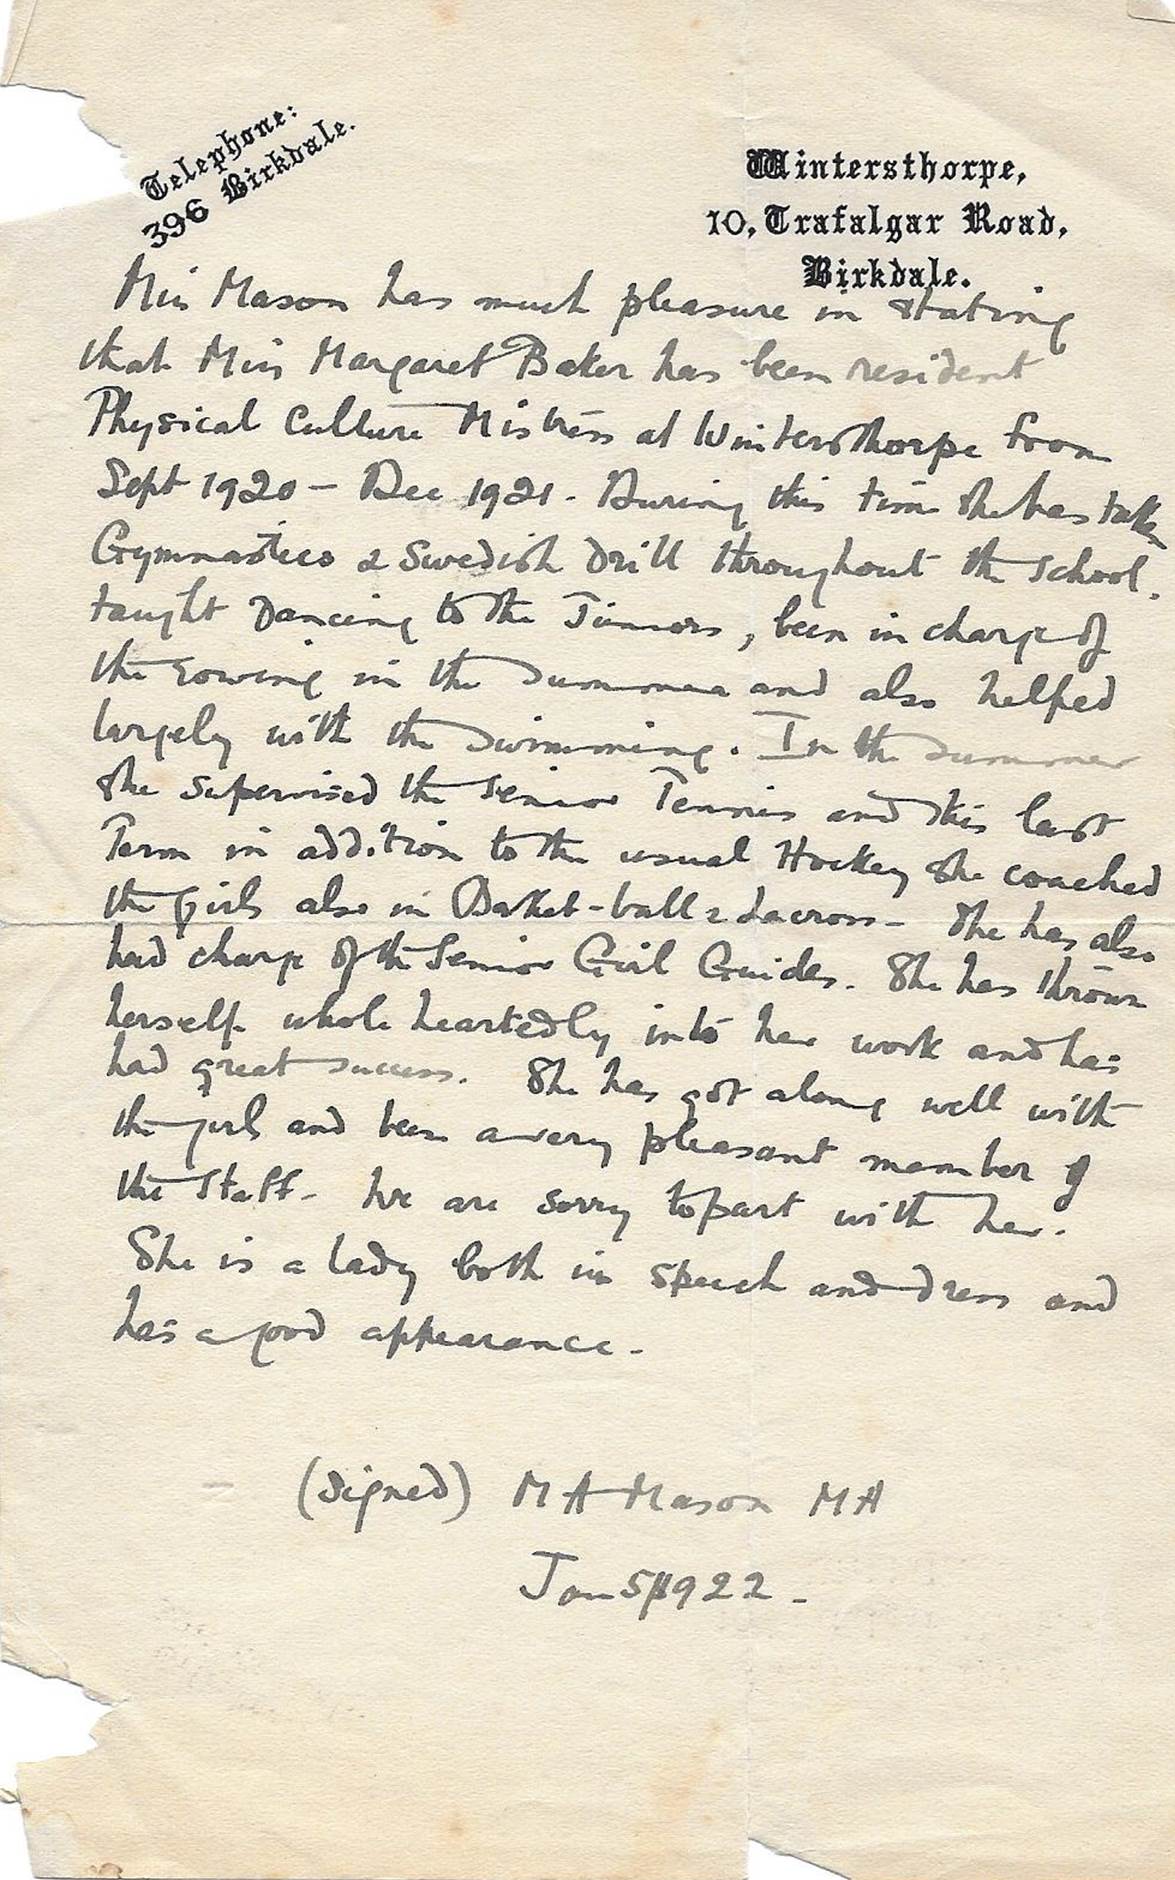 Telephone:
396 Birkdale.
Wintersthorpe,
10, Trafalgar Road,
Birkdale.
Miss Mason has much pleasure in stating
that Miss Margaret Baker has been resident
Physical Culture Mistress at Wintersthorpe from
Sept 1920 – Dec 1921. During this time she has taken
Gymnastics & Swedish Drill throughout the school,
taught Dancing to the Juniors, been in charge of
the rowing in the summer and also helped
largely with the swimming. In the summer
she supervised the senior Tennis and this last
Term in addition to the usual Hockey she coached
the girls also in Basket-ball & Lacrosse – She has also
had charge of the Senior Girl Guides. She has thrown
herself whole heartedly into her work and has
had great success. She has got along well with
the girls and been a very pleasant member of
the Staff – We are sorry to part with her.
She is a lady both in speech and dress and
has a good appearance –
(Signed) M A Mason MA
Jan 5 1922 –